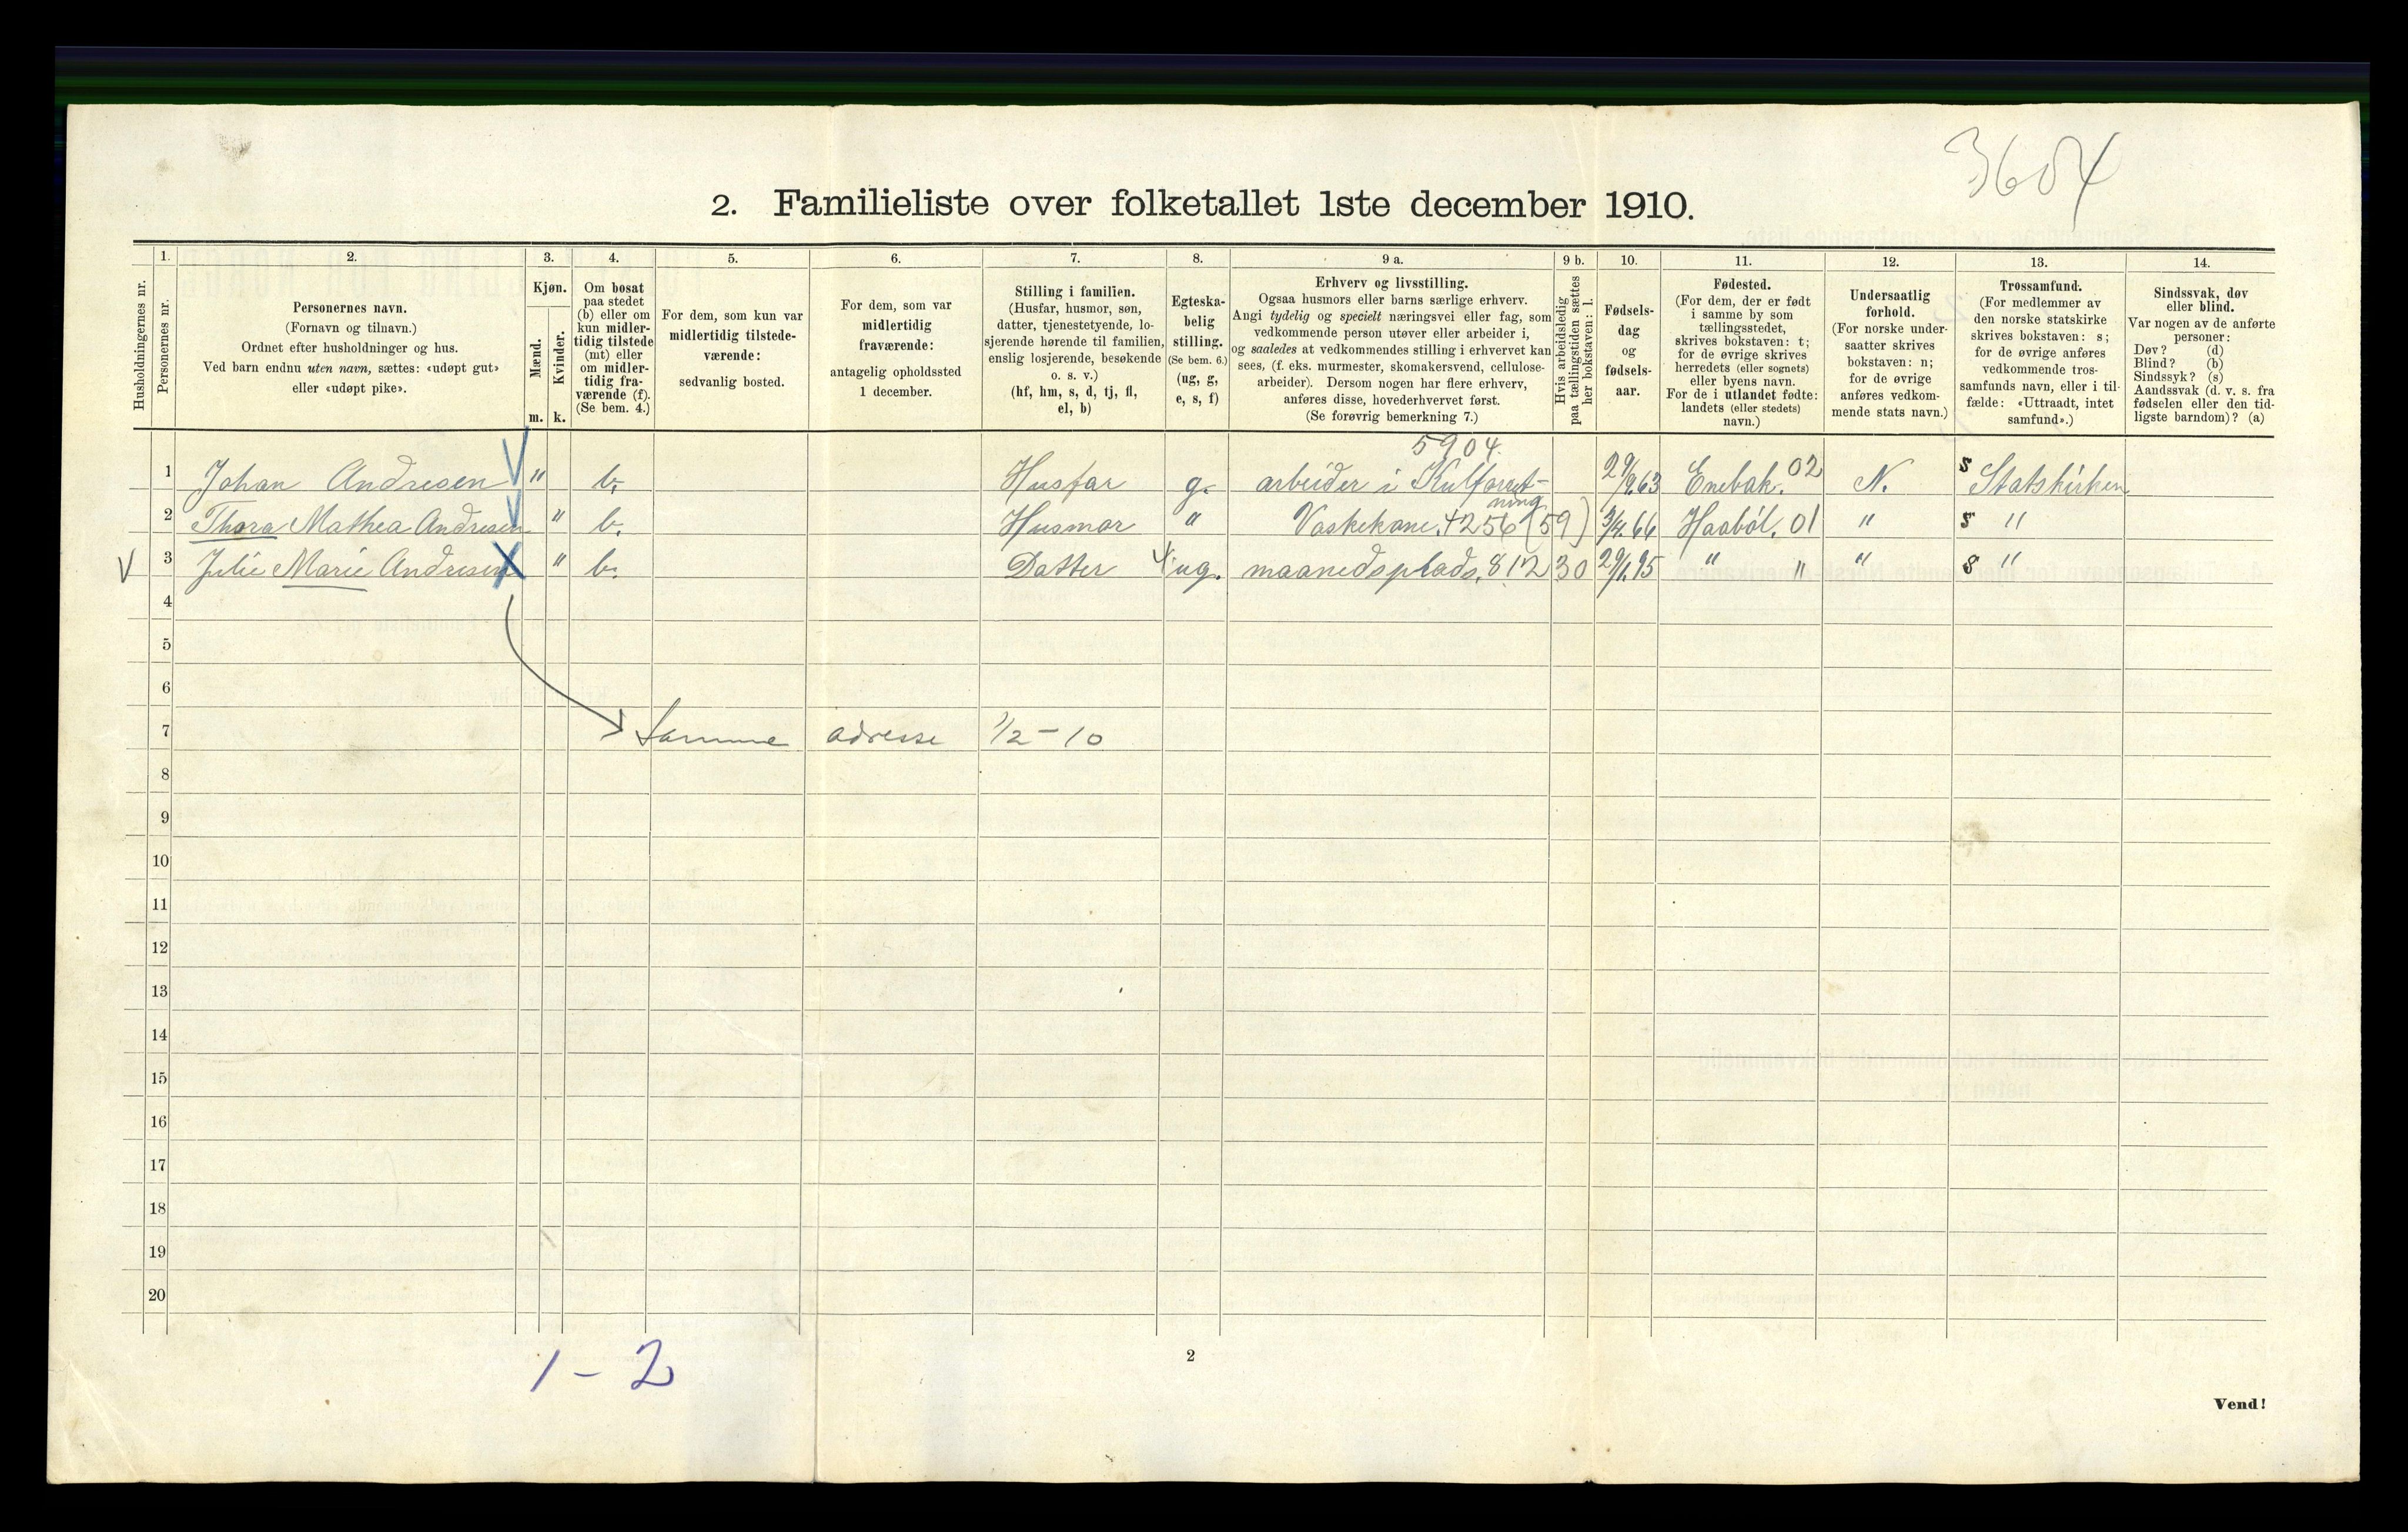 3604
2. Familieliste over folketallet 1ste december 1910.
Husholdningernes nr.
1.
Personernes nr.
2.
Personernes navn.
(Fornavn og tilnavn.)
Ordnet efter husholdninger og hus.
Ved barn endnu uten navn, sættes: «udøpt gut»
eller «udøpt pike».
3.
Kjøn.
Mænd.
m.
Kvinder.
k.
4.
Om bosat
paa stedet
(b) eller om
kun midler-
tidig tilstede
(mt) eller
om midler-
tidig fra-
værende (f).
(Se bem. 4.)
5.
For dem, som kun var
midlertidig tilstede-
værende:
sedvanlig bosted.
6.
For dem, som var
midlertidig
fraværende:
antagelig opholdssted
1 december.
7.
Stilling i familien.
(Husfar, husmor, søn,
datter, tjenestetyende, lo-
sjerende hørende til familien,
enslig losjerende, besøkende
o. s. v.)
(hf, hm, s, d, tj, fl,
el, b)
8.
Egteska-
belig
stilling.
(Se bem. 6.)
(ug, g,
e, s, f)
9 a.
Erhverv og livsstilling.
Ogsaa husmors eller barns særlige erhverv.
Angi tydelig og specielt næringsvei eller fag, som
vedkommende person utøver eller arbeider i,
og saaledes at vedkommendes stilling i erhvervet kan
sees, (f. eks. murmester, skomakersvend, cellulose-
arbeider). Dersom nogen har flere erhverv,
anføres disse, hovederhvervet først.
(Se forøvrig bemerkning 7.)
9 b.
Hvis arbeidsledig
paa tællingstiden sættes
her bokstaven: l.
10.
Fødsels-
dag
og
fødsels-
aar.
11.
Fødested.
(For dem, der er født
i samme by som
tællingsstedet,
skrives bokstaven: t;
for de øvrige skrives
herredets (eller sognets)
eller byens navn.
For de i utlandet fødte:
landets (eller stedets)
navn.)
12.
Undersaatlig
forhold.
(For norske under-
saatter skrives
bokstaven: n;
for de øvrige
anføres vedkom-
mende stats navn.)
13.
Trossamfund.
(For medlemmer av
den norske statskirke
skrives bokstaven: s;
for de øvrige anføres
vedkommende tros-
samfunds navn, eller i til-
fælde: «Uttraadt, intet
samfund».)
14.
Sindssvak, døv
eller blind.
Var nogen av de anførte
personer:
Døv? (d)
Blind? (b)
Sindssyk? (s)
Aandssvak (d. v. s. fra
fødselen eller den tid-
ligste barndom)? (a)
5904.
1 Johan Andresen " b. Husfar g. arbeider i Kulforret- 29/9.63 Enebak. 02 N. s Statskirken
ning
2 Thora Mathea Andresen " b. Husmor " Vaskekone. + 256 (59) 3/4.66 Haabøl. 01 " s "
3 Julie Marie Andresen " b. Datter ug. maanedsplads. 812 30 29/1.95 " " " s "
4
5
6
7 Samme adresse 1/2 - 10
8
9
10
11
12
13
14
15
16
17
18
19
20
1 - 2
2
Vend!